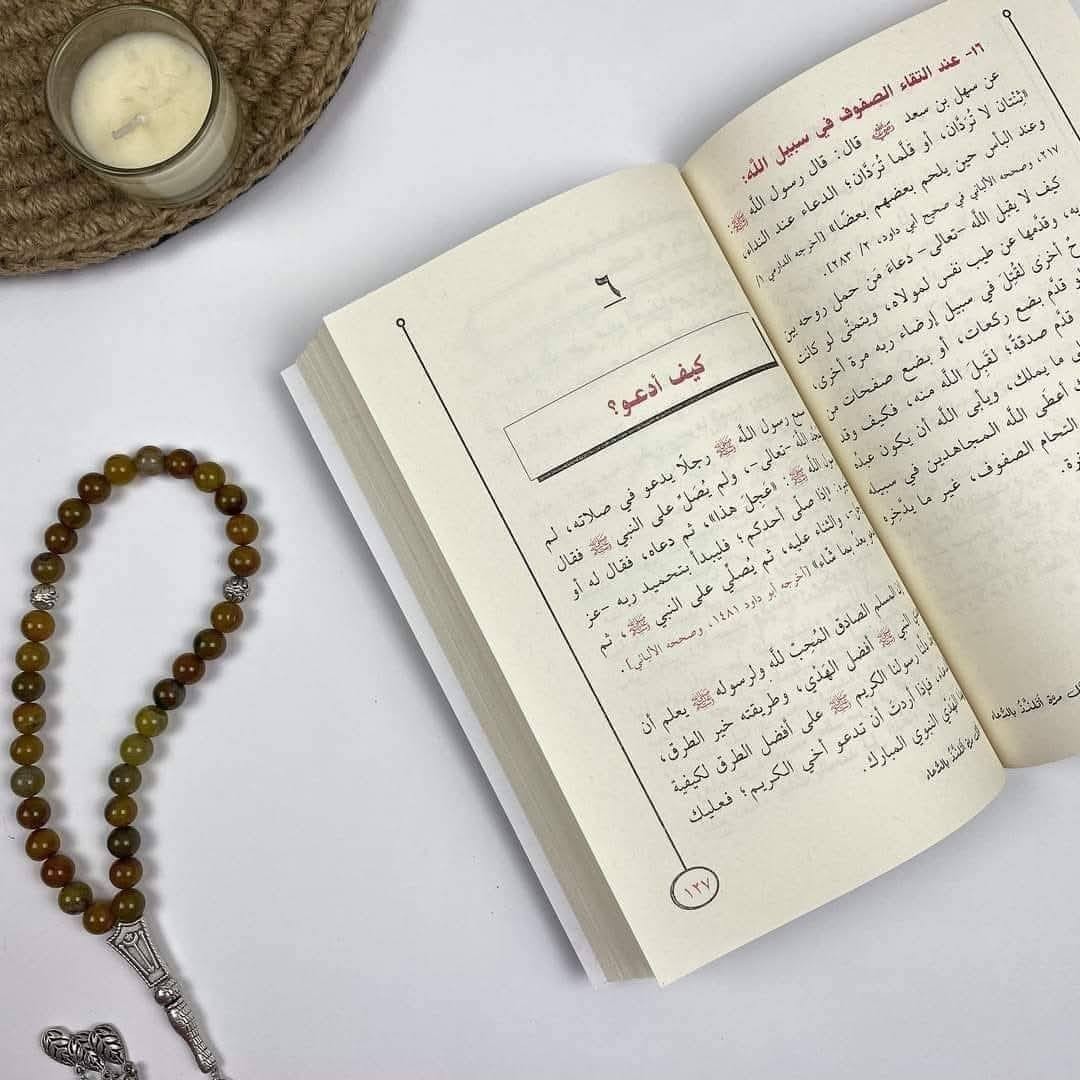 ١٦- عند التقاء الصفوف في سبيل الله:
عن سهل بن سعد رضي الله عنه قال: قال رسول الله ﷺ:
«ثِنْتان لا تُرَدَّان، أو قَلَّما تُرَدَّان؛ الدعاء عند النداء،
وعند البأس حين يلحم بعضهم بعضًا» [أخرجه الدارمي ١/
٢١٧، وصححه الألباني في صحيح أبي داود، ٣/ ٢٨٣].
كيف لا يقبل الله -تعالى- دعاءَ مَن حمل روحه بين
وقدَّمها عن طيب نفس لمولاه، ويتمنَّى لو كانت
أخرى لقُتِلَ في سبيل إرضاء ربه مرة أخرى،
قدَّم بضع ركعات، أو بضع صفحات من
قدَّم صدقةً؛ لقَبِلَ الله منه، فكيف وقد
ما يملك، ويأبى الله أن يكون عبدُه
أعطى الله المجاهدين في سبيله
التحام الصفوف، غير ما يدَّخِره
٦
كيف أدعو؟
رسول الله ﷺ رجلًا يدعو في صلاته، لم
الله -تعالى-، ولم يُصَلِّ على النبي ﷺ فقال
ﷺ: «عَجِلَ هذا»، ثم دعاه، فقال له أو
«إذا صلى أحدكم؛ فليبدأ بتحميد ربه -عز
والثناء عليه، ثم يُصلِّي على النبي ﷺ، ثم
بعدُ بما شاء» [أخرجه أبو داود ١٤٨١، وصححه الألباني].
المسلم الصادق المُحِبّ لله ولرسوله ﷺ يعلم أن
النبي ﷺ أفضل الهَدْي، وطريقته خير الطرق،
رسولنا الكريم ﷺ على أفضل الطرق لكيفية
فإذا أردتَ أن تدعو أخي الكريم؛ فعليك
الهَدْي النبوي المبارك.
١٢٧